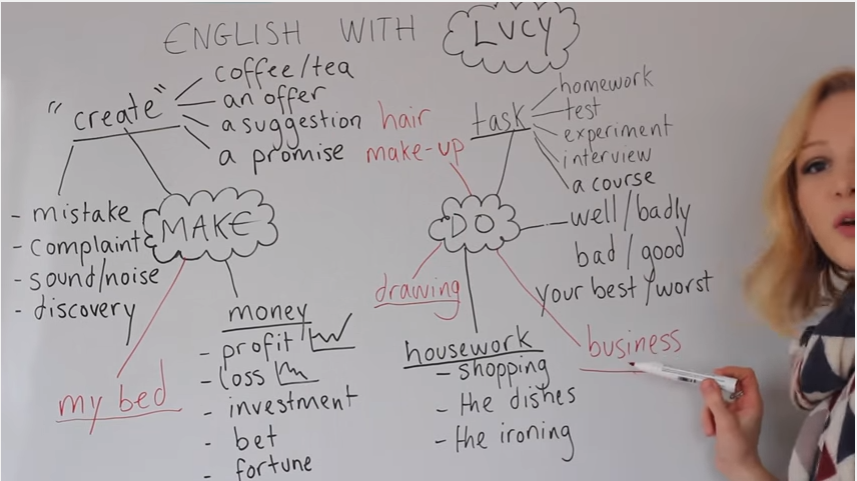 ENGLISH WITH LUCY
"create"
coffee/tea
an offer
a suggestion
a promise
- mistake
- complaint
- sound/noise
- discovery
MAKE
my bed
money
- profit
- loss
- investment
- bet
- fortune
hair
make-up
task
homework
test
experiment
interview
a course
DO
well/badly
bad/good
your best/worst
drawing
housework
- shopping
- the dishes
- the ironing
business